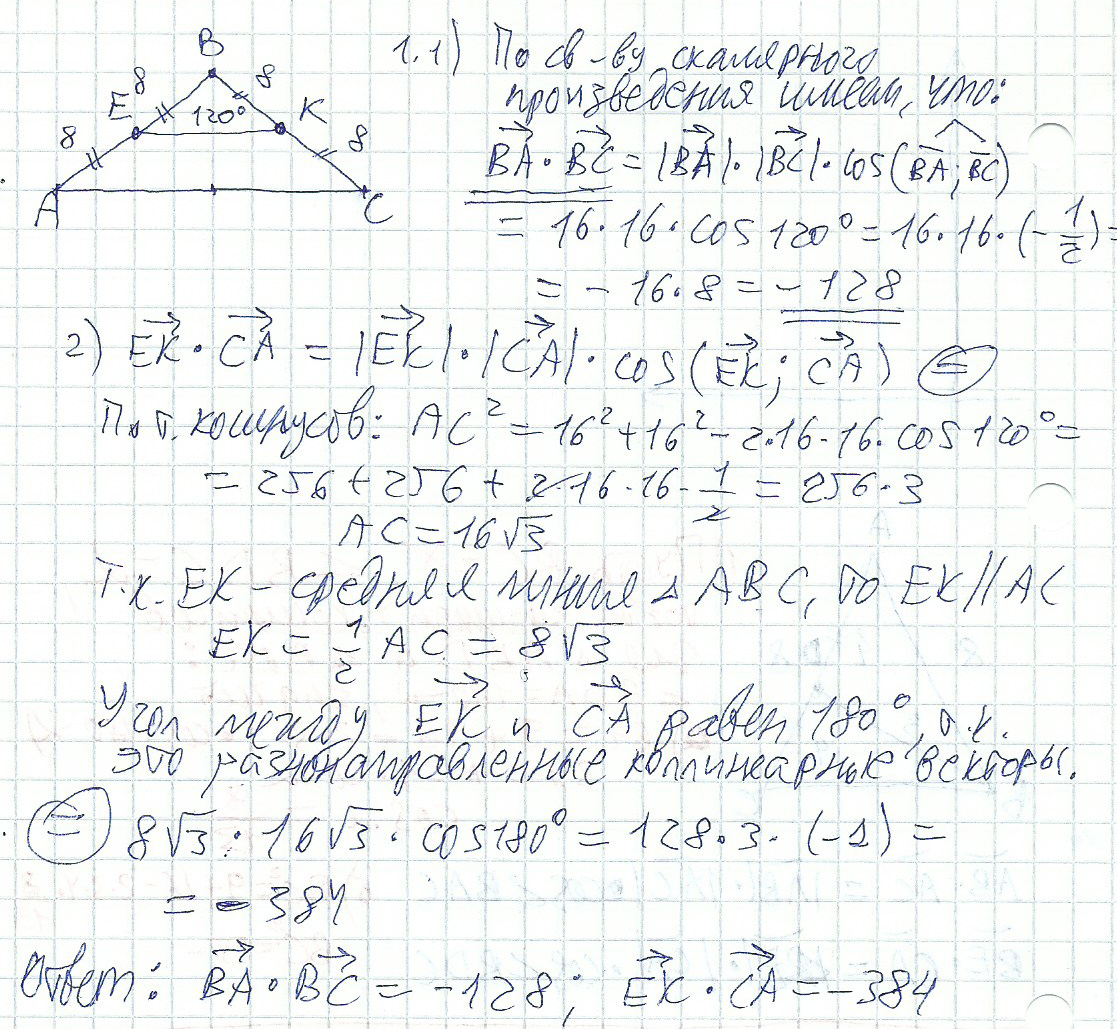 B
8
8
E
120°
K
8
8
A
C
1.1) По св-ву скалярного
произведения имеем, что:
BA · BC = |BA| · |BC| · cos(BA; BC)
= 16 · 16 · cos 120° = 16 · 16 · (-1/2) =
= - 16 · 8 = - 128
2) EK · CA = |EK| · |CA| · cos(EK; CA) =
По т. косинусов: AC² = 16² + 16² - 2·16·16· cos 120° =
= 256 + 256 + 2·16·16· 1/2 = 256 · 3
AC = 16√3
Т.к. EK - средняя линия △ ABC, то EK // AC
EK = 1/2 AC = 8√3
Угол между EK и CA равен 180°, т.к.
это разнонаправленные коллинеарные векторы.
= 8√3 · 16√3 · cos180° = 128 · 3 · (-1) =
= - 384
Ответ: BA · BC = -128; EK · CA = -384